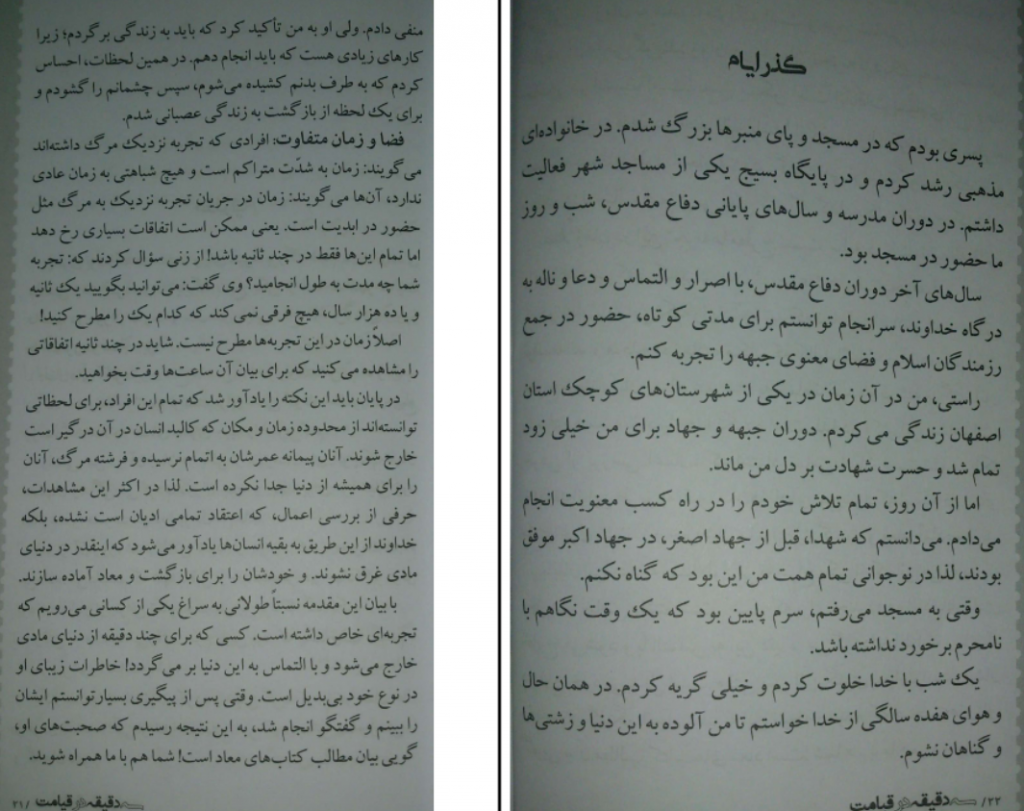 منفی دادم. ولی او به من تأکید کرد که باید به زندگی برگردم؛ زیرا
کارهای زیادی هست که باید انجام دهم. در همین لحظات، احساس
کردم که به طرف بدنم کشیده می‌شوم، سپس چشمانم را گشودم و
برای یک لحظه از بازگشت به زندگی عصبانی شدم.
فضا و زمان متفاوت: افرادی که تجربه نزدیک مرگ داشته‌اند
می‌گویند: زمان به شدّت متراکم است و هیچ شباهتی به زمان عادی
ندارد، آن‌ها می‌گویند: زمان در جریان تجربه نزدیک به مرگ مثل
حضور در ابدیت است. یعنی ممکن است اتفاقات بسیاری رخ دهد
اما تمام این‌ها فقط در چند ثانیه باشد! از زنی سؤال کردند که: تجربه
شما چه مدت به طول انجامید؟ وی گفت: می‌توانید بگویید یک ثانیه
و یا ده هزار سال، هیچ فرقی نمی‌کند که کدام یک را مطرح کنید!
اصلاً زمان در این تجربه‌ها مطرح نیست. شاید در چند ثانیه اتفاقاتی
را مشاهده می‌کنید که برای بیان آن ساعت‌ها وقت بخواهید.
در پایان باید این نکته را یادآور شد که تمام این افراد، برای لحظاتی
توانسته‌اند از محدوده زمان و مکان که کالبد انسان در آن درگیر است
خارج شوند. آنان پیمانه عمرشان به اتمام نرسیده و فرشته مرگ، آنان
را برای همیشه از دنیا جدا نکرده است. لذا در اکثر این مشاهدات،
حرفی از بررسی اعمال، که اعتقاد تمامی ادیان است نشده، بلکه
خداوند از این طریق به بقیه انسان‌ها یادآور می‌شود که اینقدر در دنیای
مادی غرق نشوند. و خودشان را برای بازگشت و معاد آماده سازند.
با بیان این مقدمه نسبتاً طولانی به سراغ یکی از کسانی می‌رویم که
تجربه‌ای خاص داشته است. کسی که برای چند دقیقه از دنیای مادی
خارج می‌شود و با التماس به این دنیا بر می‌گردد! خاطرات زیبای او
در نوع خود بی‌بدیل است. وقتی پس از پیگیری بسیار توانستم ایشان
را ببینم و گفتگو انجام شد، به این نتیجه رسیدم که صحبت‌های او،
گویی بیان مطالب کتاب‌های معاد است! شما هم با ما همراه شوید.
سه دقیقه در قیامت /۲۱
گذر ایام
پسری بودم که در مسجد و پای منبرها بزرگ شدم. در خانواده‌ای
مذهبی رشد کردم و در پایگاه بسیج یکی از مساجد شهر فعالیت
داشتم. در دوران مدرسه و سال‌های پایانی دفاع مقدس، شب و روز
ما حضور در مسجد بود.
سال‌های آخر دوران دفاع مقدس، با اصرار و التماس و دعا و ناله به
درگاه خداوند، سرانجام توانستم برای مدتی کوتاه، حضور در جمع
رزمندگان اسلام و فضای معنوی جبهه را تجربه کنم.
راستی، من در آن زمان در یکی از شهرستان‌های کوچک استان
اصفهان زندگی می‌کردم. دوران جبهه و جهاد برای من خیلی زود
تمام شد و حسرت شهادت بر دل من ماند.
اما از آن روز، تمام تلاش خودم را در راه کسب معنویت انجام
می‌دادم. می‌دانستم که شهدا، قبل از جهاد اصغر، در جهاد اکبر موفق
بودند، لذا در نوجوانی تمام همت من این بود که گناه نکنم.
وقتی به مسجد می‌رفتم، سرم پایین بود که یک وقت نگاهم با
نامحرم برخورد نداشته باشد.
یک شب با خدا خلوت کردم و خیلی گریه کردم. در همان حال
و هوای هفده سالگی از خدا خواستم تا من آلوده به این دنیا و زشتی‌ها
و گناهان نشوم.
۲۲/ سه دقیقه در قیامت